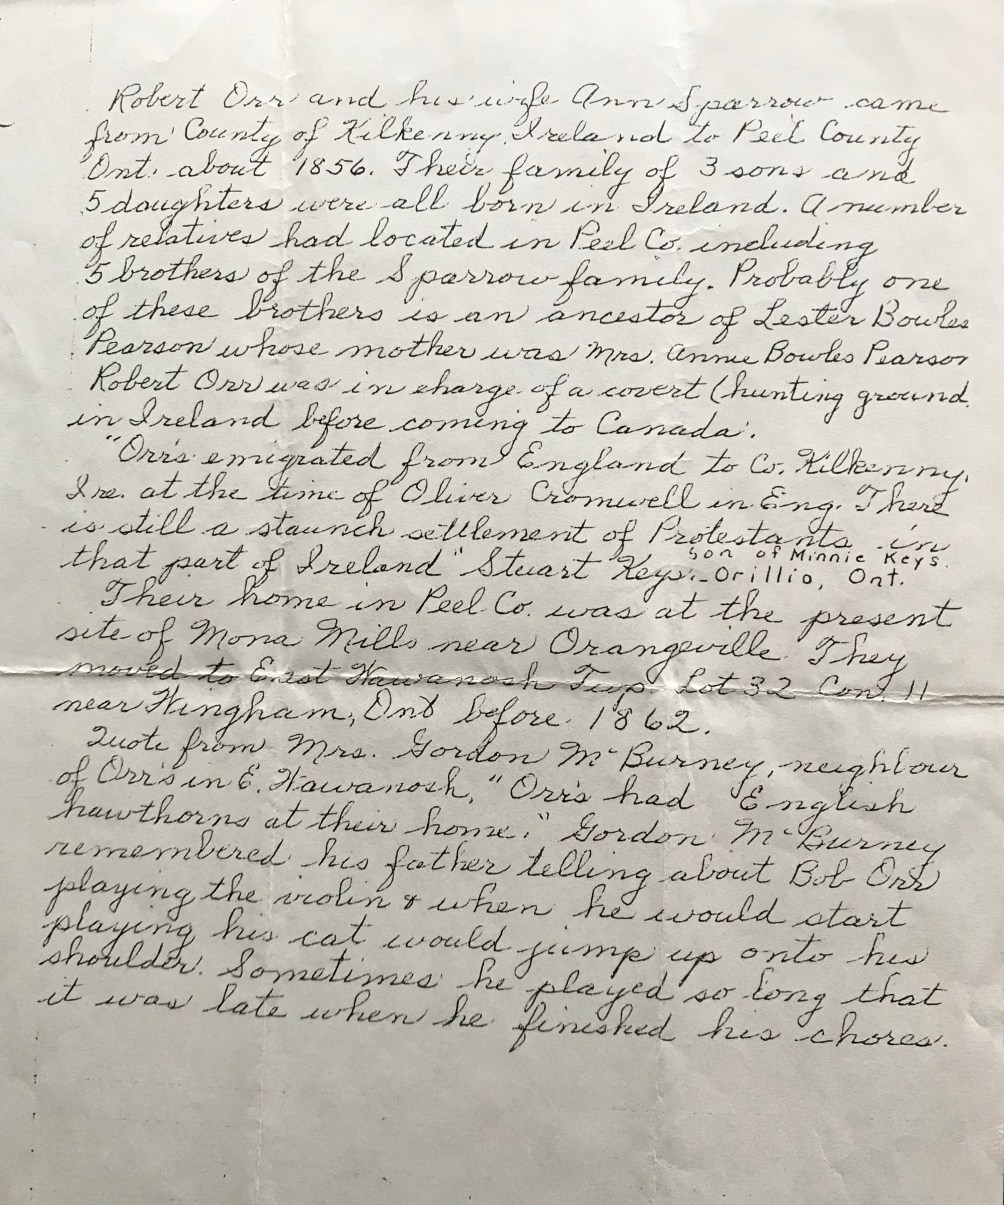 Robert Orr and his wife Ann Sparrow came
from County of Kilkenny Ireland to Peel County
Ont. about 1856. Their family of 3 sons and
5 daughters were all born in Ireland. A number
of relatives had located in Peel Co. including
5 brothers of the Sparrow family. Probably one
of these brothers is an ancestor of Lester Bowles
Pearson whose mother was Mrs. Annie Bowles Pearson
Robert Orr was in charge of a covert (hunting ground
in Ireland before coming to Canada.
"Orrs emigrated from England to Co. Kilkenny,
Ire. at the time of Oliver Cromwell in Eng. There
is still a staunch settlement of Protestants in
son of Minnie Keys.
that part of Ireland" Stuart Keys - Orillio, Ont.
Their home in Peel Co. was at the present
site of Mona Mills near Orangeville. They
moved to East Wawanosh Twp. Lot 32 Con. 11
near Wingham, Ont before 1862.
Quote from Mrs. Gordon McBurney, neighbour
of Orr's in E. Wawanosh, "Orrs had English
hawthorns at their home." Gordon McBurney
remembered his father telling about Bob Orr
playing the violin & when he would start
playing his cat would jump up onto his
shoulder. Sometimes he played so long that
it was late when he finished his chores.